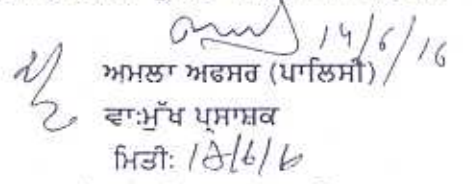 14/6/16
ਅਮਲਾ ਅਫਸਰ (ਪਾਲਿਸੀ)
ਵਾ:ਮੁੱਖ ਪ੍ਰਸਾਸ਼ਕ
ਮਿਤੀ: